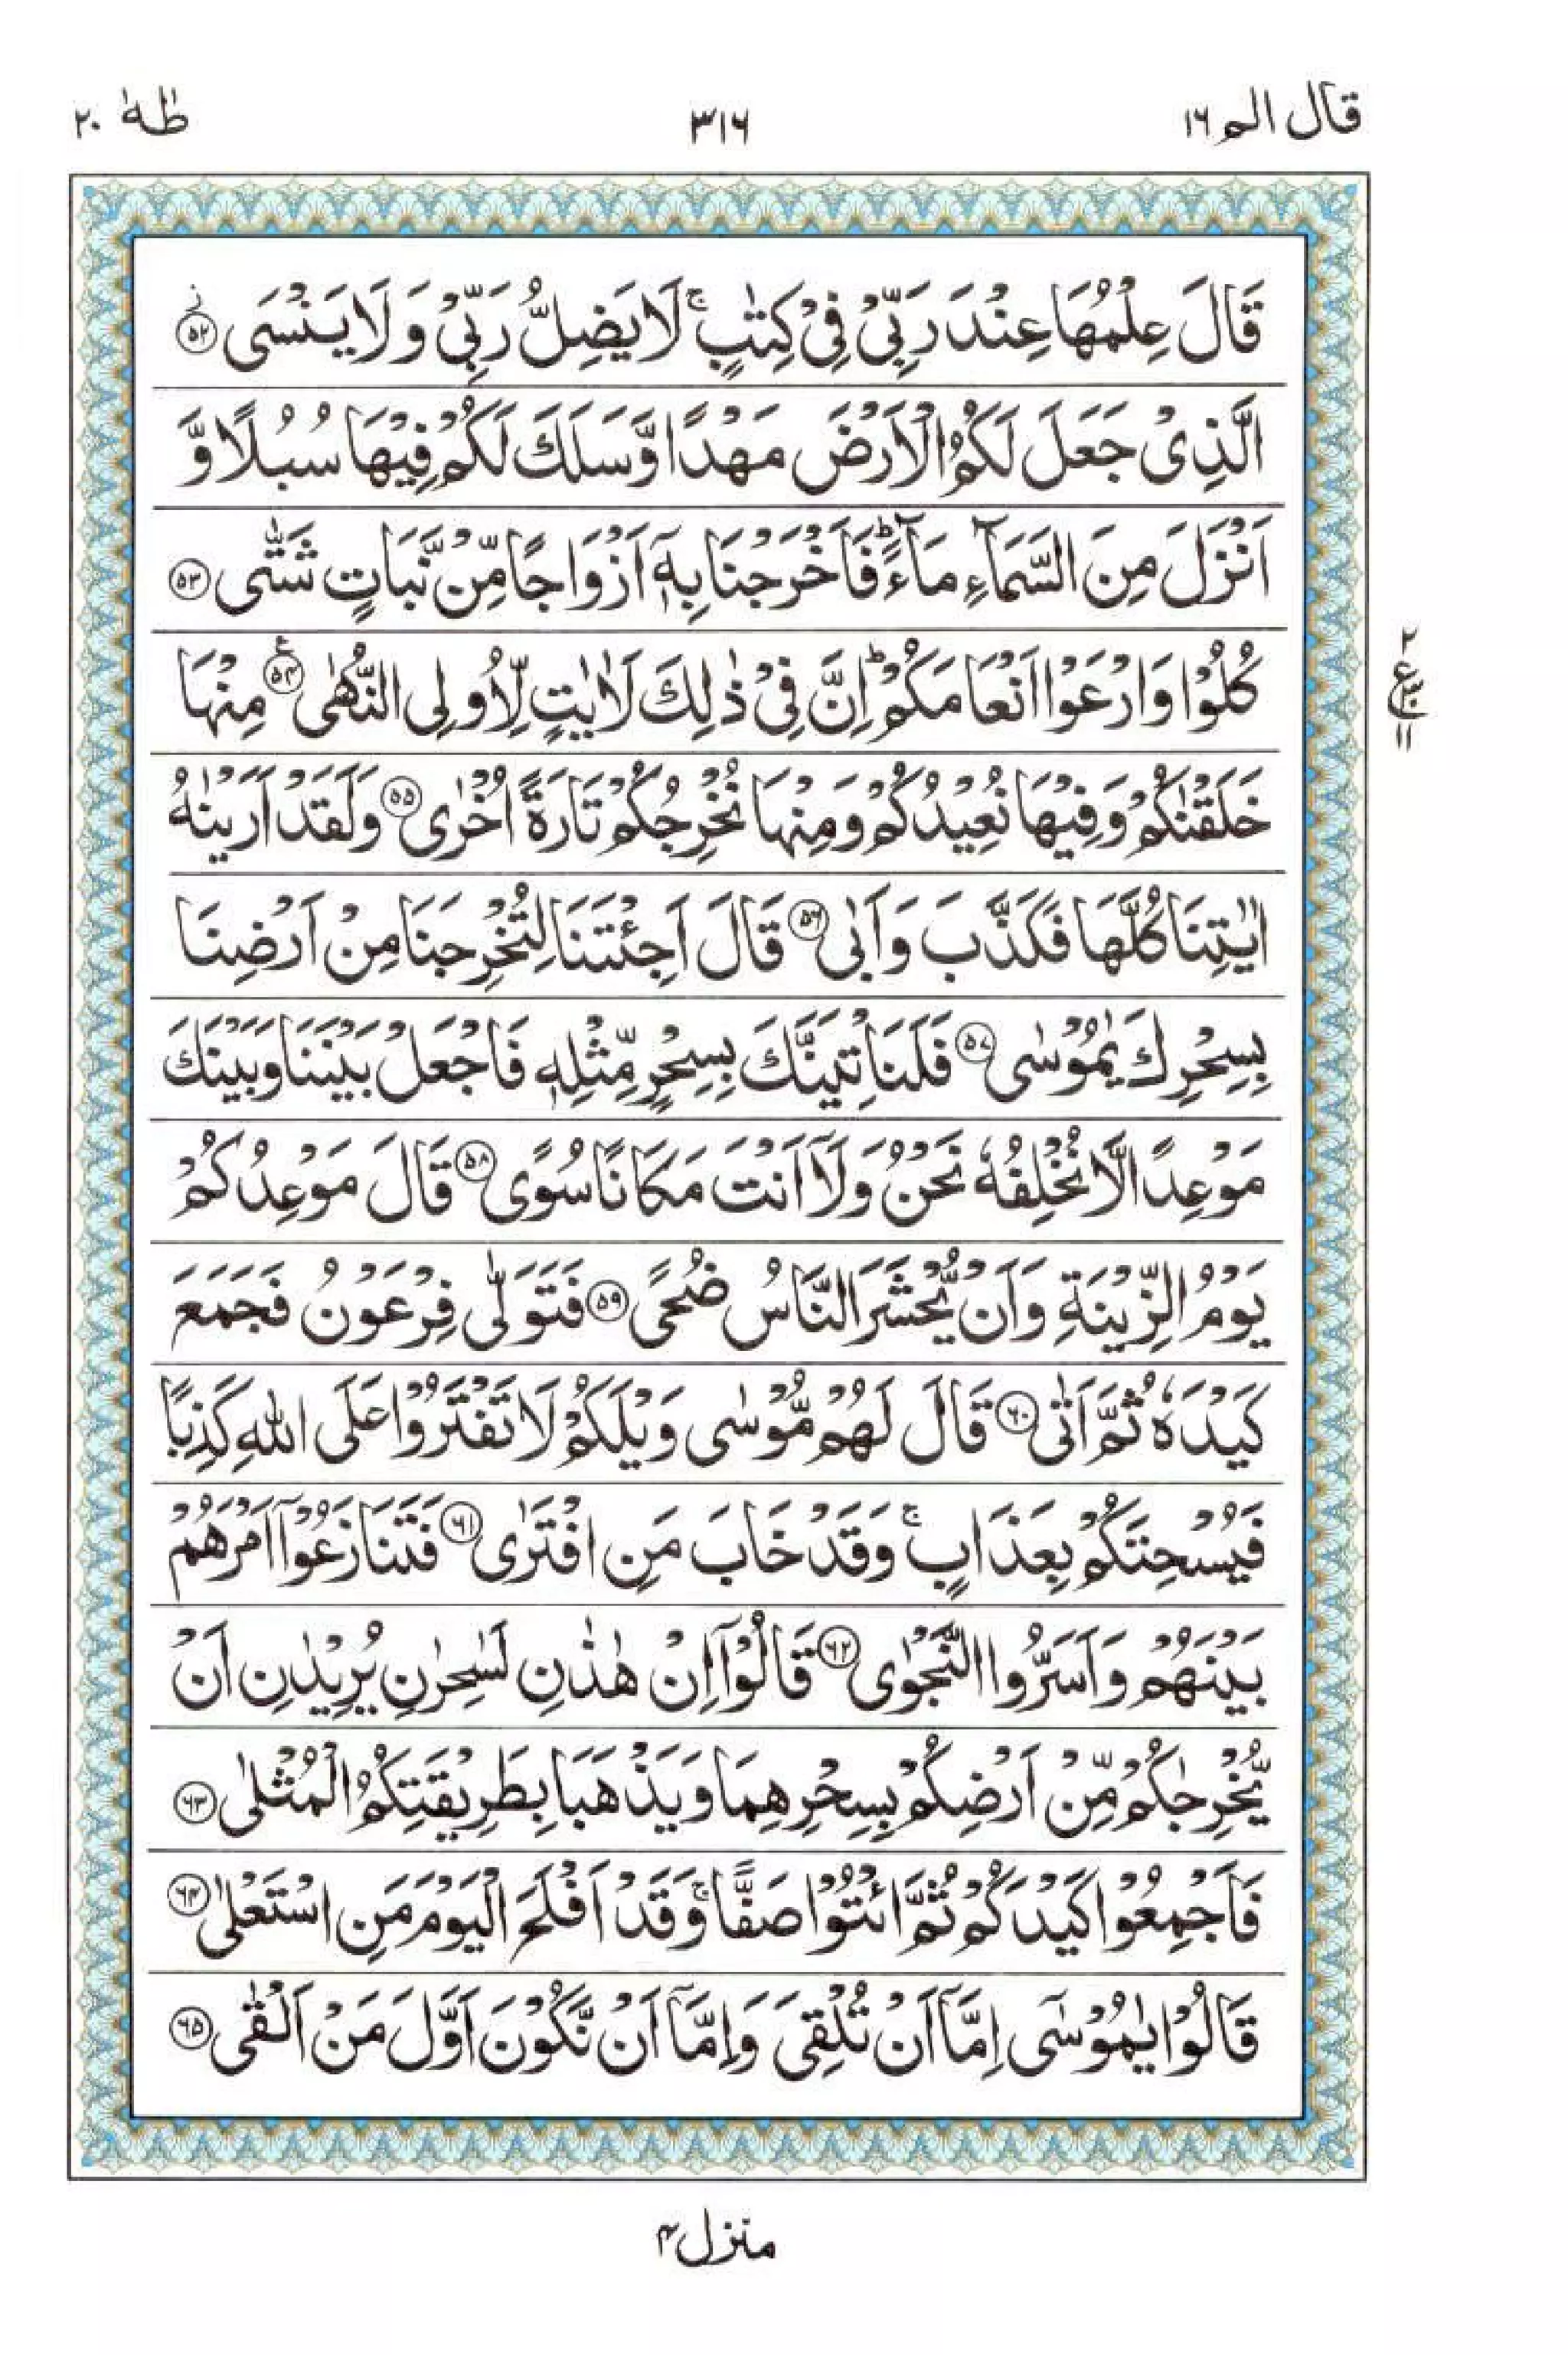 قال الم ١٦
٣١٦
طٰهٰ ٢٠
قَالَ عِلْمُهَا عِنْدَ رَبِّيْ فِيْ كِتٰبٍ ۚ لَا يَضِلُّ رَبِّيْ وَلَا يَنْسَى ۙ﴿٥٢﴾
الَّذِيْ جَعَلَ لَكُمُ الْاَرْضَ مَهْدًا وَّسَلَكَ لَكُمْ فِيْهَا سُبُلًا وَّ
اَنْزَلَ مِنَ السَّمَآءِ مَآءً ؕ فَاَخْرَجْنَا بِهٖٓ اَزْوَاجًا مِّنْ نَّبَاتٍ شَتّٰى ﴿٥٣﴾
كُلُوْا وَارْعَوْا اَنْعَامَكُمْ ؕ اِنَّ فِيْ ذٰلِكَ لَاٰيٰتٍ لِّاُولِي النُّهٰى ﴿٥٤﴾ ع مِنْهَا
خَلَقْنٰكُمْ وَفِيْهَا نُعِيْدُكُمْ وَمِنْهَا نُخْرِجُكُمْ تَارَةً اُخْرٰى ﴿٥٥﴾ وَلَقَدْ اَرَيْنٰهُ
اٰيٰتِنَا كُلَّهَا فَكَذَّبَ وَاَبٰى ﴿٥٦﴾ قَالَ اَجِئْتَنَا لِتُخْرِجَنَا مِنْ اَرْضِنَا
بِسِحْرِكَ يٰمُوْسٰى ﴿٥٧﴾ فَلَنَاْتِيَنَّكَ بِسِحْرٍ مِّثْلِهٖ فَاجْعَلْ بَيْنَنَا وَبَيْنَكَ
مَوْعِدًا لَّا نُخْلِفُهٗ نَحْنُ وَلَآ اَنْتَ مَكَانًا سُوًى ﴿٥٨﴾ قَالَ مَوْعِدُكُمْ
يَوْمُ الزِّيْنَةِ وَاَنْ يُّحْشَرَ النَّاسُ ضُحًى ﴿٥٩﴾ فَتَوَلّٰى فِرْعَوْنُ فَجَمَعَ
كَيْدَهٗ ثُمَّ اَتٰى ﴿٦٠﴾ قَالَ لَهُمْ مُّوْسٰى وَيْلَكُمْ لَا تَفْتَرُوْا عَلَى اللّٰهِ كَذِبًا
فَيُسْحِتَكُمْ بِعَذَابٍ ۚ وَقَدْ خَابَ مَنِ افْتَرٰى ﴿٦١﴾ فَتَنَازَعُوْٓا اَمْرَهُمْ
بَيْنَهُمْ وَاَسَرُّوا النَّجْوٰى ﴿٦٢﴾ قَالُوْٓا اِنْ هٰذٰنِ لَسٰحِرٰنِ يُرِيْدٰنِ اَنْ
يُّخْرِجٰكُمْ مِّنْ اَرْضِكُمْ بِسِحْرِهِمَا وَيَذْهَبَا بِطَرِيْقَتِكُمُ الْمُثْلٰى ﴿٦٣﴾
فَاَجْمِعُوْا كَيْدَكُمْ ثُمَّ ائْتُوْا صَفًّا ۚ وَقَدْ اَفْلَحَ الْيَوْمَ مَنِ اسْتَعْلٰى ﴿٦٤﴾
قَالُوْا يٰمُوْسٰٓى اِمَّآ اَنْ تُلْقِيَ وَاِمَّآ اَنْ نَّكُوْنَ اَوَّلَ مَنْ اَلْقٰى ﴿٦٥﴾
٢
ع
١١
منزل ٤